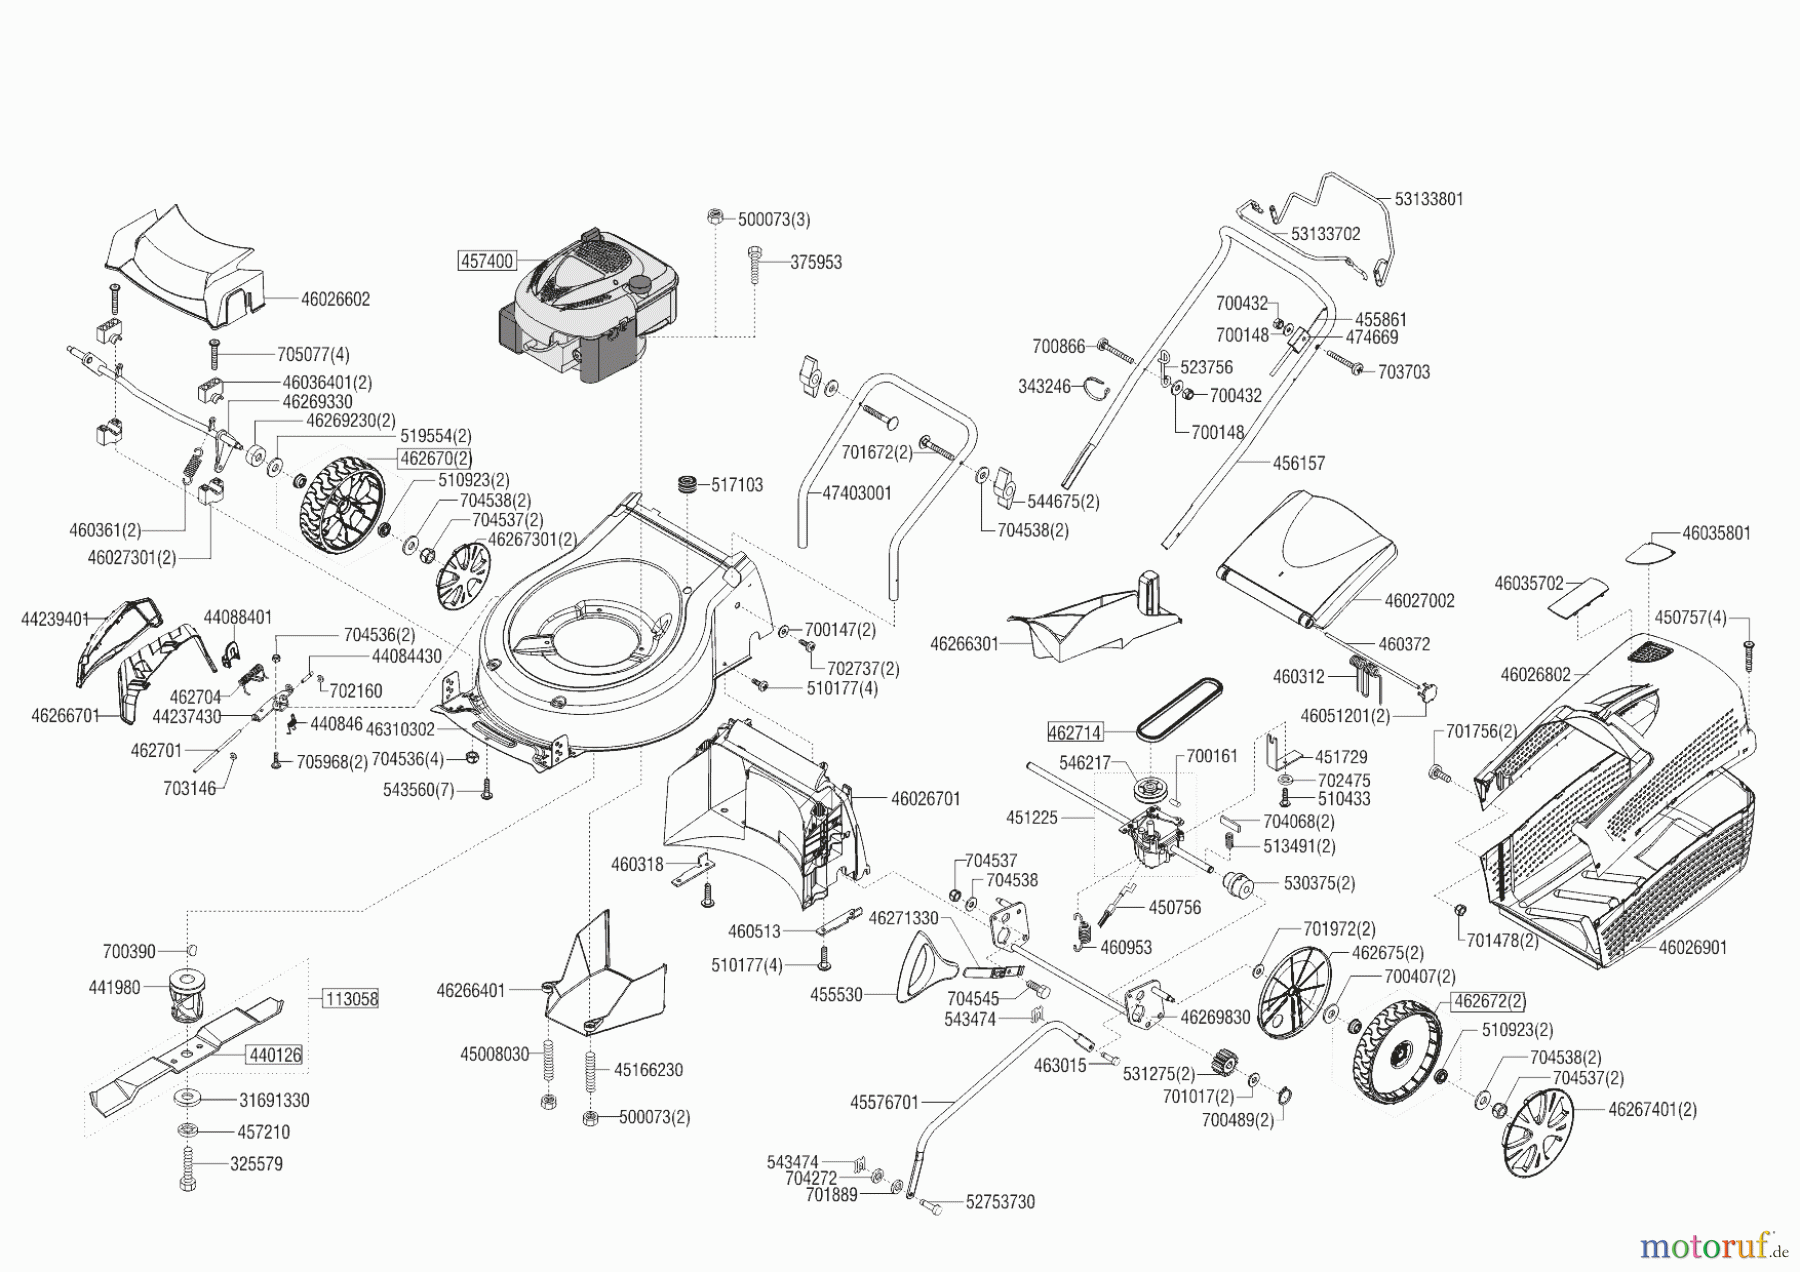 53133801
500073(3)
53133702
457400
375953
46026602
700432
455861
700148
474669
700866
705077(4)
523756
703703
46036401(2)
343246
700432
46269330
46269230(2)
519554(2)
700148
701672(2)
462670(2)
456157
510923(2)
517103
47403001
544675(2)
704538(2)
704537(2)
460361(2)
704538(2)
46267301(2)
46035801
46027301(2)
46035702
46027002
44239401
44088401
450757(4)
704536(2)
700147(2)
46266301
460372
44084430
702737(2)
460312
46026802
702160
462704
510177(4)
46266701
44237430
440846
46310302
46051201(2)
462714
701756(2)
462701
705968(2)
704536(4)
546217
700161
451729
702475
703146
543560(7)
46026701
510433
451225
704068(2)
513491(2)
460318
704537
704538
530375(2)
450756
46271330
460513
460953
701972(2)
701478(2)
46026901
700390
462675(2)
510177(4)
700407(2)
441980
46266401
455530
704545
113058
462672(2)
543474
46269830
510923(2)
440126
45008030
463015
704538(2)
45166230
531275(2)
704537(2)
701017(2)
31691330
45576701
46267401(2)
500073(2)
700489(2)
457210
325579
543474
704272
701889
52753730
motoruf.de